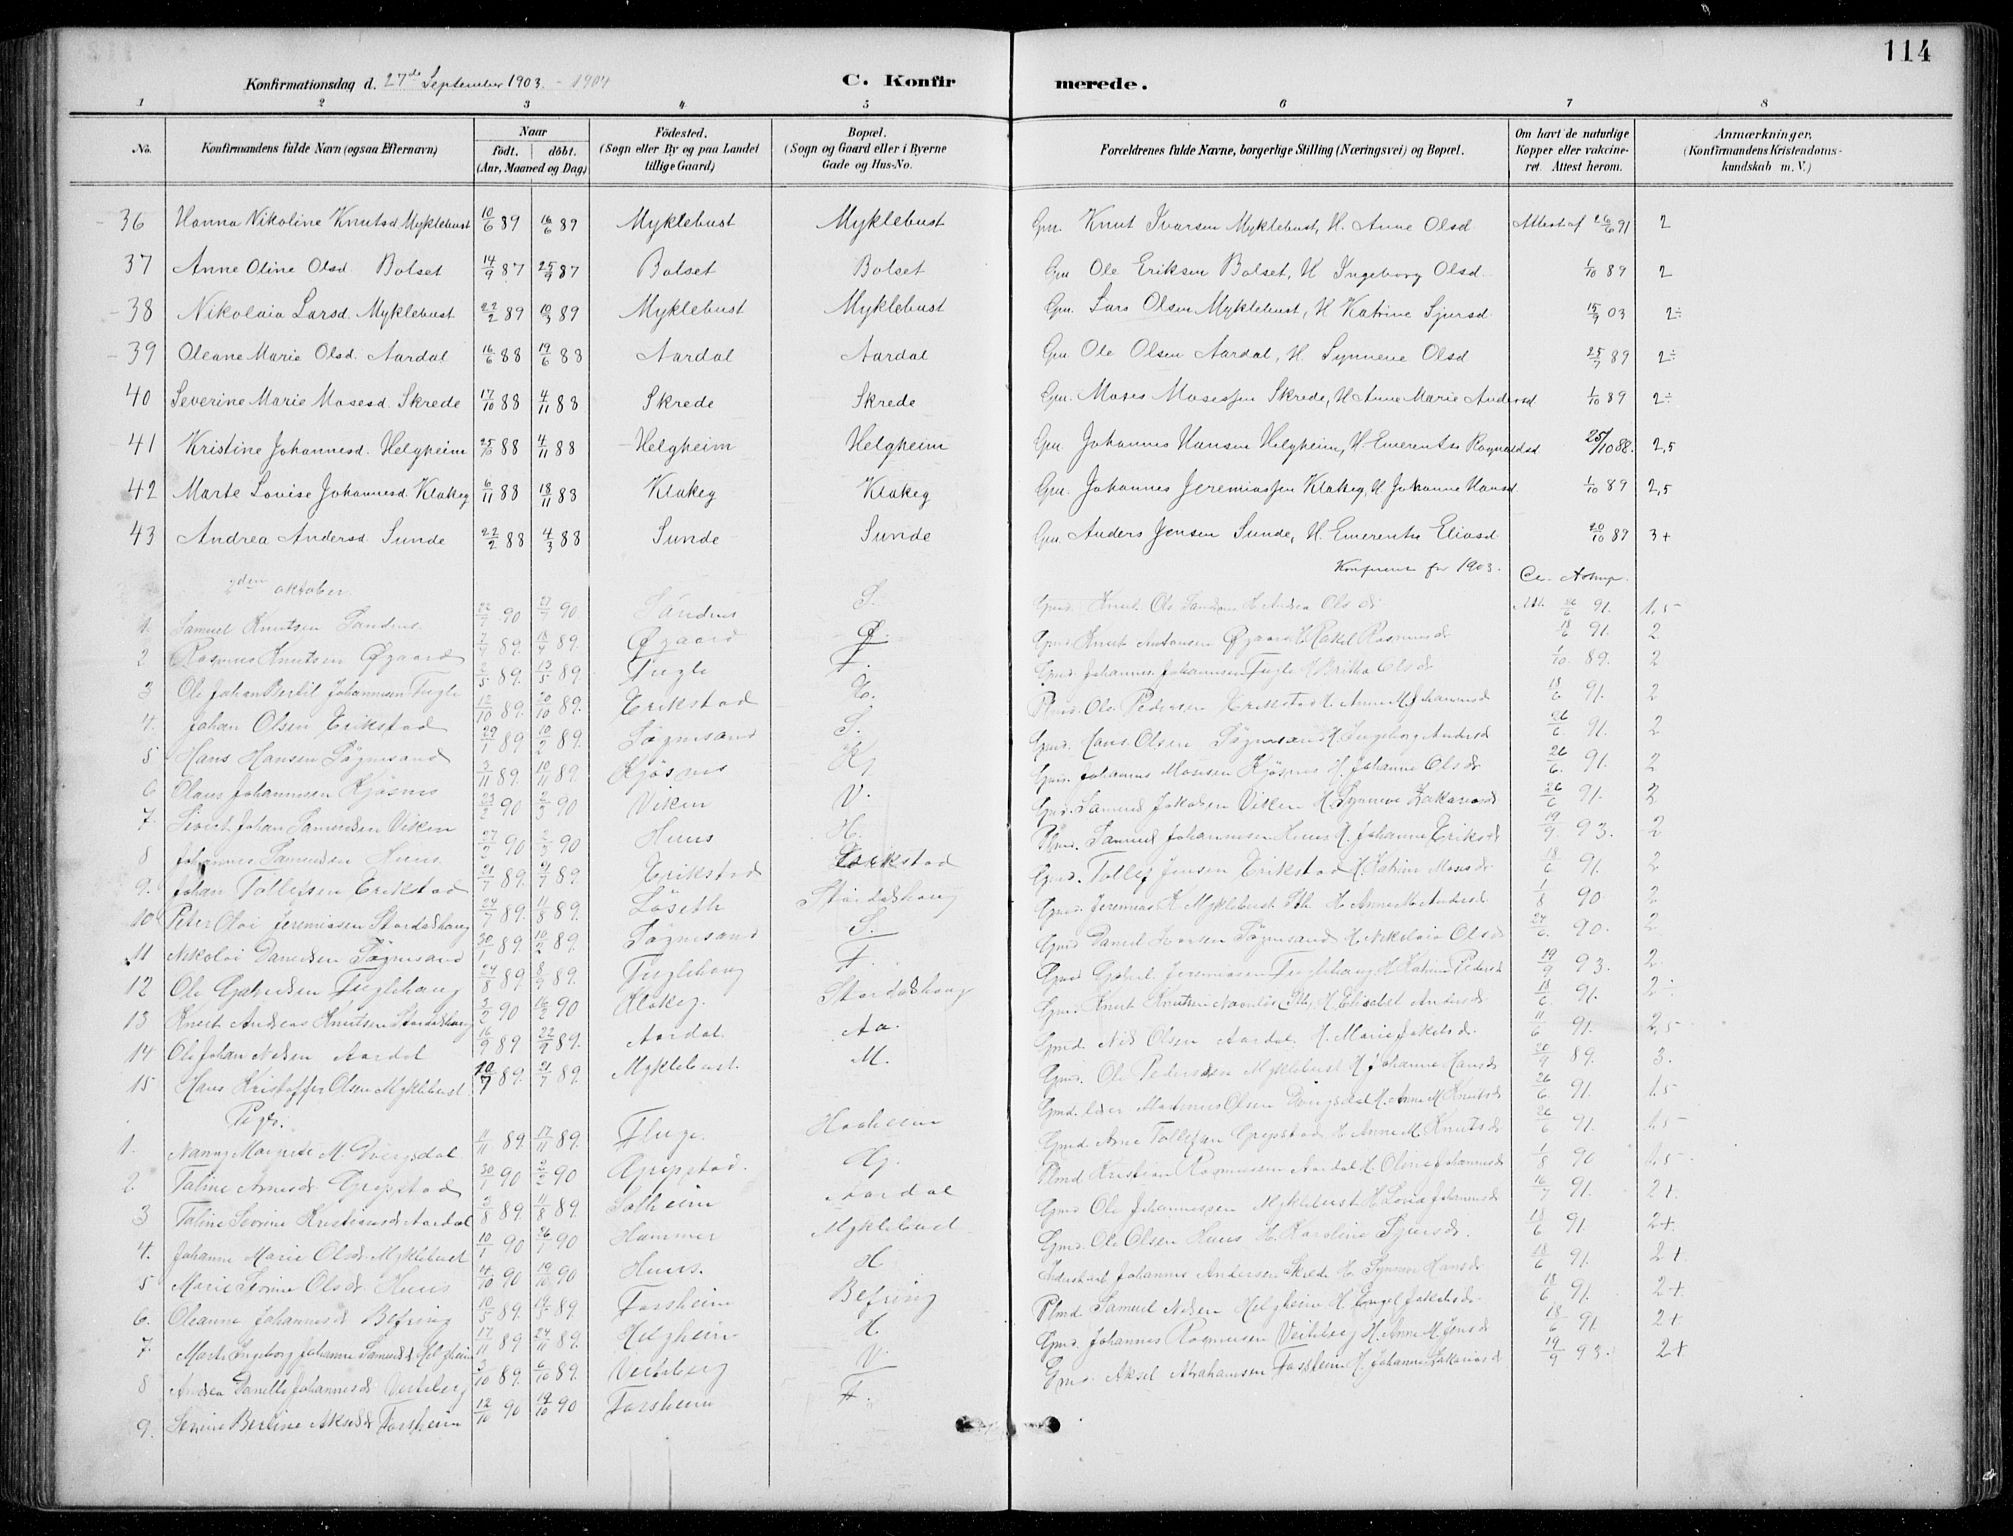 114
Konfirmationsdag d. 27de September 1903. - 1904
C. Konfirmerede.
1 2 3 4 5 6 7 8
No. Konfirmandens fulde Navn (ogsaa Efternavn) Naar født. døbt. (Aar, Maaned og Dag) Födested. (Sogn eller By og paa Landet tillige Gaard) Bopæl. (Sogn og Gaard eller i Byerne Gade og Hus-No. Forældrenes fulde Navne, borgerlige Stilling (Næringsvei) og Bopæl. Om havt de naturlige Kopper eller vakcineret. Attest herom. Anmærkninger, (Konfirmandens Kristendomskundskab m. V.)
36 Hanna Nikoline Knutsd. Myklebust 10/6 89 16/6 89 Myklebust Myklebust Gm. Knut Ivarsen Myklebust, H. Anne Olsd. Attest af 26/6 91 2
37 Anne Oline Olsd. Bolset 14/9 87 25/9 87 Bolset Bolset Gm. Ole Eriksen Bolset, H Ingeborg Olsd. 1/10 89 2
38 Nikolaia Larsd. Myklebust 22/2 89 10/3 89 Myklebust Myklebust Gm. Lars Olsen Myklebust, H Katrine Sjursd. 15/9 03 2÷
39 Oleane Marie Olsd. Aardal 16/6 88 19/6 88 Aardal Aardal Gm. Ole Olsen Aardal, H. Synneve Olsd 25/9 89 2÷
40 Severine Marie Mosesd. Skrede 17/10 88 4/11 88 Skrede Skrede Gm. Moses Mosessen Skrede, H Anne Marie Andersd 1/10 89 2÷
41 Kristine Johannesd. Helgheim 25/10 88 4/11 88 Helgheim Helgheim Gm. Johannes Hansen Helgheim, H. Emerentse Rognaldsd 25/10 88. 2,5
42 Marte Lovise Johannesd. Klakeg 6/11 88 18/11 88 Klakeg Klakeg Gm. Johannes Jeremiassen Klakeg, H Johanne Hansd. 1/10 89 2,5
43 Andrea Andersd. Sunde 22/2 88 4/3 88 Sunde Sunde Gm Anders Jensen Sunde, H. Emerentse Eliasd. 20/10 89 3+
Konfererer for 1903. Chr. Astrup.
2den oktober.
1. Samuel Knutsen Sandnes 90 90 Sandnes S. Gmd. Knut Ols Sandnes H. Andrea Olsdr Att. 26/6 91. 1,5
2 Rasmus Knutsen Øgaard 89. 89. Øgaard Ø. Gmd. Knut Antonsen Øgaard H Rakel Rasmusdr 18/6 91. 2
3 Ole Johan Bertil Johannesen Fugle 2/5 89. 89. Fugle F. Gmd. Johannes Johannesen Fugle H Britha Olsdr 1/10. 89. 2
4. Johan Olsen Erikstad 12/10 89. 20/10 89. Erikstad E. Plmd. Ole Pedersen Erikstad H. Anne M Johannesdr 18/6 91. 2
5 Hans Hansen Søgnesand 29/1 89 10/2 89. Søgnesand S. Gmd. Hans Olsen Søgnesand H. Ingeborg Andersdr 26/6. 91. 2
6 Olaus Johannesen Kjøsnes 3/11 89. 10/11 89. Kjøsnes Kj. Gmd. Johannes Mosesen Kjøsnes H. Johanne Olsdr 26/6. 91. 2
7. Sivert Johan Samuelsen Viken 23/2 90 2/3 90 Viken V. Gmd. Samuel Jakobsen Viken H. Synneve Zakariasdr 26/6 91. 2
8 Johannes Samuelsen Huus. 90 90 Huus H. Plmd. Samuel Johannesen Huus H. Johanne Eriksdr 19/9. 93. 2
9. Johan Tollefsen Erikstad 21/7 89. 89. Erikstad Erikstad Gmd. Tollef Jensen Erikstad H Katrine Mosesdr 18/6 91. 2
10 Peter Olai Jeremiassen Stardalshaug 89. 11/8 89. Løseth Stardalshaug Gmd. Jeremias K Myklebust Sth. H. Anne M. Andersdr 1/8 90. 2
11 Nikolai Danielsen Søgnesand 30/1 89 10/2 89. Søgnesand S. Gmd Daniel Ivarsen Søgnesand H. Nikolaia Olsdr 24/6. 90. 2
12 Ole Gabrielsen Fuglehaug 89. 89. Fuglehaug F. Gmd Gabriel Jeremiassen Fuglehaug H Katrine Pedersdr 19/9 93. 2.
13 Knut Andreas Knutsen Stardalshaug 3/2 90 16/2 90 Klakeg. Stardalshaug Gmd. Knut Knutsen (Sth) H. Elisabet Andersdr 18/6. 91. 2÷
14 Ole Johan Nilsen Aardal 16/9 89 22/9 89. Aardal Aa. Gmd. Nils Olsen Aardal. H. Marie Jakobsdr. 11/6 91. 2,5
15 Hans Kristoffer Olsen Myklebust 10/7 89. 21/7 89. Myklebust. M. Gmd. Ole Pedersen Myklebust H Johanne Hansdr 20/9 89. 3.
Piger.
1. Nanny Margrete M. Dvergsdal 11/11 89. 17/11 89. Fluge. Haaheim Gmd. Martinus Olsen Dvergsdal H. Anne M. Knutsdr 26/6 91. 1,5
2. Taline Arnesdr Grepstad 30/1 90 2/2 90 Grepstad. Kj Gmd. Arne Tollefsen Grepstad H. Anne M. Knutsdr 26/6 91. 1,5
3 Taline Severine Kristiansdr Aardal 3/8 89. 11/8 89. Solheim Aardal Plmd Kristian Rasmussen Aardal H. Oline Johannesdr 1/8 90 1,5
4. Johanne Marie Olsdr Myklebust 10/1 90 26/1 90 Hammer Myklebust Gmd Ole Johannessen Myklebust H. Lovise Johannesdr 16/7 91. 2+
5 Marie Severine Olsdr Huus 4/10 90 19/10 90 Huus. H Gmd. Ole Olsen Huus H. Karoline Sjursdr. 18/6 91. 2+
6. Oleanne Johannesdr Befring 10/5 89. 19/5 89. Forsheim Befring Inderstad Johannes Andersen Skrede H. Synneve Hansdr 18/6 91. 2+
7. Marte Ingeborg Johanne Samuelsdr Helgheim 17/11 89 24/11 89. Helgheim H. Plmd. Samuel Nilsen Helgheim H. Engel Jakobsdr 18/6 91. 2+
8 Andrea Danelle Johannesdr Veiteberg 3/10 89. 6/10 89. Veiteberg V. Gmd. Johannes Rasmusen Veiteberg H. Anne M. Jensdr 18/6 91. 2+
9. Severine Bertine Akselsdr Forsheim 12/10 90 19/10 90 Forsheim F. Gmd. Aksel Abrahamsen Forsheim H. Johanne Zakariasdr 19/9 93. 2+